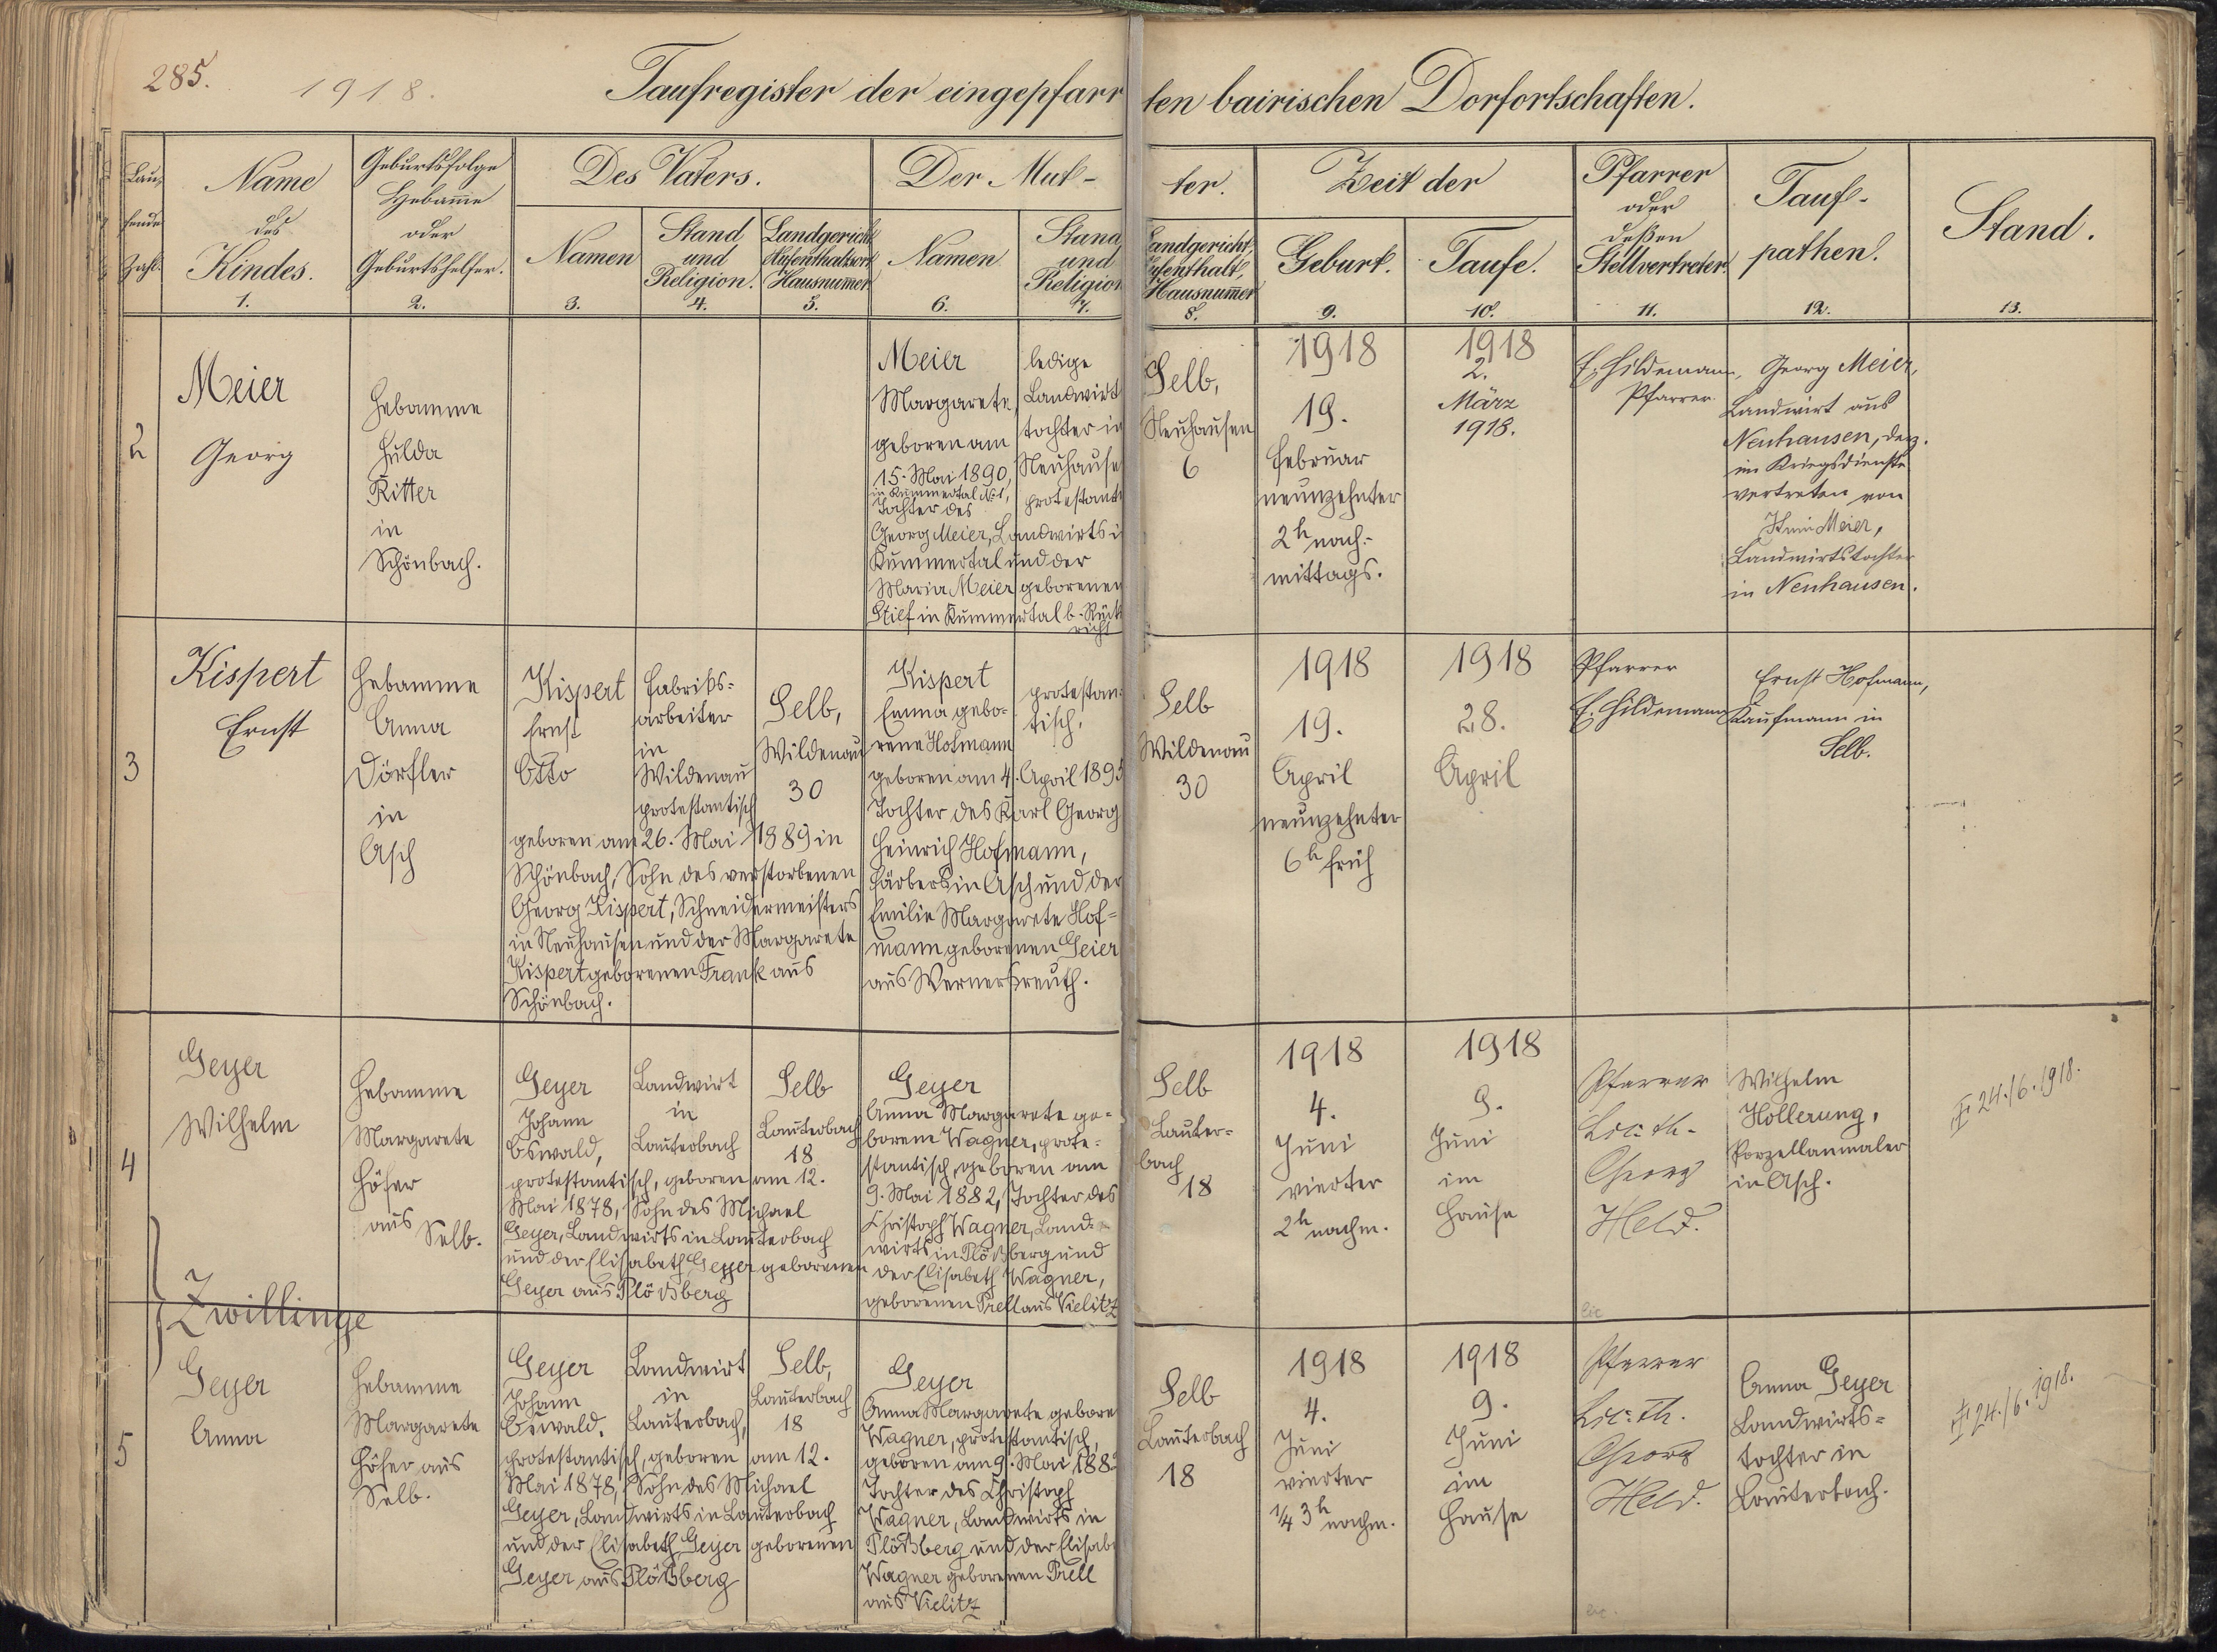 285.
1918.
Taufregister der eingepfarrten bairischen Dorfortschaften.
Laufende Zahl.
Name des Kindes.
1.
Geburtsfolge
Hebamme
oder
Geburtshelfer.
2.
Des Vaters.
Namen
3.
Stand
und
Religion.
4.
Landgericht
Aufenthaltsort
Hausnummer
5.
Der Mutter.
Namen
6.
Stand
und
Religion
7.
Landgericht,
Aufenthalt,
Hausnummer
8.
Zeit der
Geburt.
9.
Taufe.
10.
Pfarrer
oder
deßen
Stellvertreter.
11.
Tauf-
pathen.
12.
Stand.
13.
2
Meier
Georg
Hebamme
Hulda
Ritter
in
Schönbach.
Meier
Margarete,
geboren am
15. Mai 1890,
in Kummertal No 1,
Tochter des
Georg Meier, Landwirts i
Kummertal und der
Maria Meier geborenen
Stilf in Kummertal b. Rück
richt
ledige
Landwirt
tochter in
Neuhause
protestant
Selb,
Neuhausen
6
1918
19.
Februar
neunzehnter
2h nach-
mittags.
1918
2.
März
1918.
E. Hildemann,
Pfarrer.
Georg Meier,
Landwirt aus
Neuhausen, derz.
im Kriegsdienste
vertreten von
Meier,
Landwirtstochter
in Neuhausen.
3
Kispert
Ernst
Hebamme
Anna
Dörfler
in
Asch
Kispert
Ernst
Otto
Fabriks-
arbeiter
in
Wildenau
protestantisch
Selb,
Wildenau
30
geboren am 26. Mai 1889 in
Schönbach, Sohn des verstorbenen
Georg Kispert, Schneidermeisters
in Neuhausen und der Margarete
Kispert geborenen Frank aus
Schönbach.
Kispert
Emma gebo-
rene Hofmann
protestan-
tisch,
geboren am 4. April 1895
Tochter des Karl Georg
Heinrich Hofmann,
Färbers in Asch und der
Emilie Margarete Hof=
mann geborenen Geier
aus Wernersreuth.
Selb
Wildenau
30
1918
19.
April
neunzehnter
6h früh
1918
28.
April
Pfarrer
E. Hildemann
Ernst Hofmann,
Kaufmann in
Selb.
4
Geyer
Wilhelm
Hebamme
Margarete
Höfer
aus
Selb.
Geyer
Johann
Oswald,
Landwirt
in
Lauterbach
Selb
Lauterbach
18
protestantisch, geboren am 12.
Mai 1878, Sohn des Michael
Geyer, Landwirts in Lauterbach
und der Elisabeth Geyer geborenen
Geyer aus Plößberg
Geyer
Anna Margarete ge-
borene Wagner, prote=
stantisch, geboren am
9. Mai 1882, Tochter des
Christoph Wagner, Land=
wirts in Plößberg und
der Elisabeth Wagner,
geborenen Prell aus Vielitz
Selb
Lauter=
bach
18
1918
4.
Juni
vierter
2h nachm.
1918
9.
Juni
im
Hause
Pfarrer
Lic. th.
Georg
Held.
Wilhelm
Höllerung,
Porzellanmaler
in Asch.
24./6. 1918.
Zwillinge
5
Geyer
Anna
Hebamme
Margarete
Höfer aus
Selb.
Geyer
Johann
Oswald.
Landwirt
in
Lauterbach,
Selb,
Lauterbach
18
protestantisch, geboren am 12.
Mai 1878, Sohn des Michael
Geyer, Landwirts in Lauterbach
und der Elisabeth Geyer geborenen
Geyer aus Plößberg
Geyer
Anna Margarete gebore
Wagner, protestantisch,
geboren am 9. Mai 1882
Tochter des Christoph
Wagner, Landwirts in
Plößberg und der Elisab
Wagner geborenen Prell
aus Vielitz
Selb
Lauterbach
18
1918
4.
Juni
vierter
1/4 3h nachm.
1918
9.
Juni
im
Hause
Pfarrer
Lic. th.
Georg
Held.
Anna Geyer
Landwirts=
tochter in
Lauterbach.
24./6. 1918.